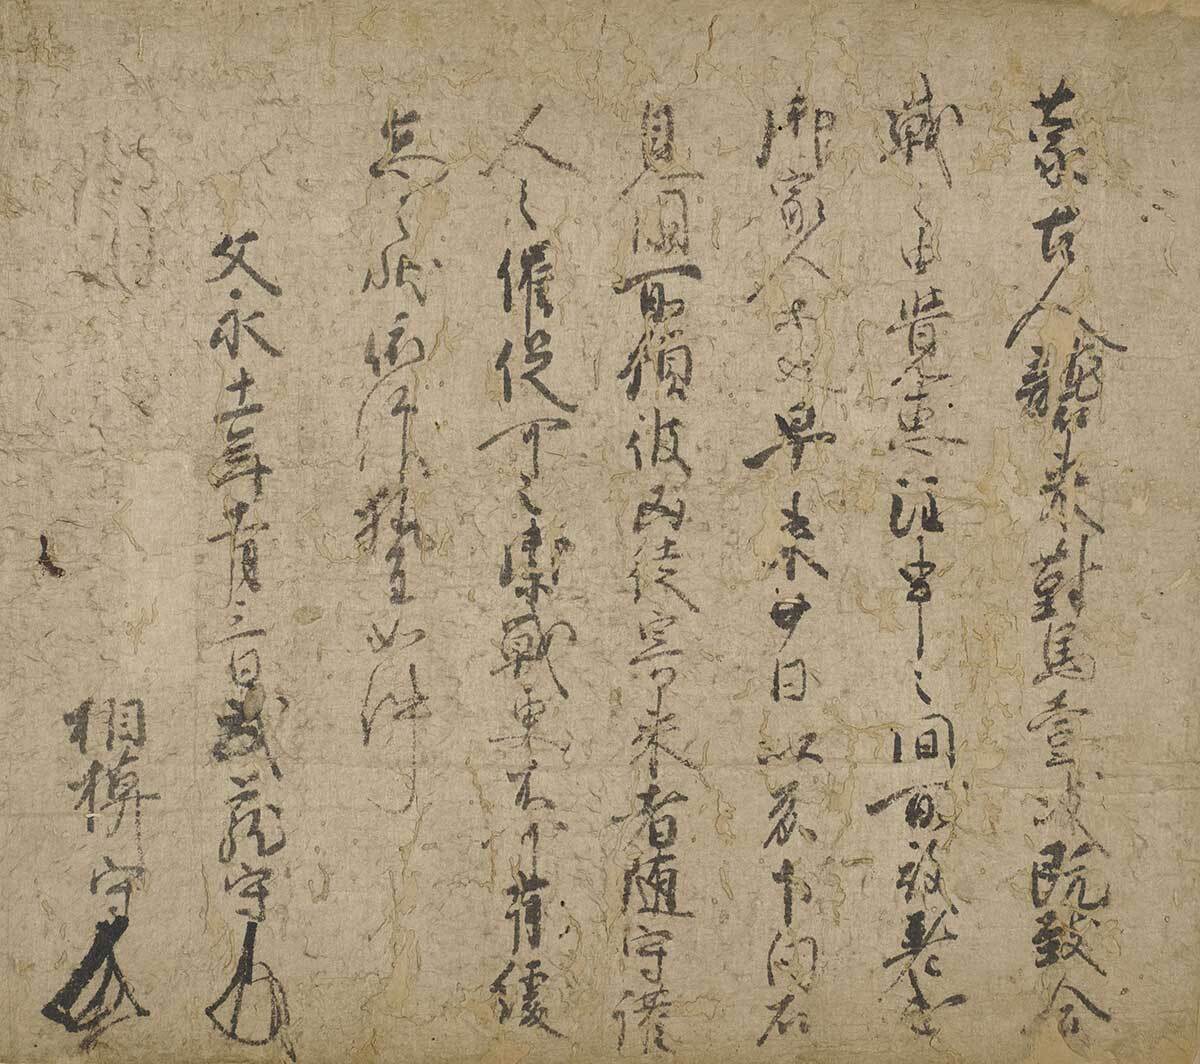 蒙古人襲来對馬壹岐既致合
戦之由覺恵注申之間所被差遣
御家人等也早来廿日以前下向石
見国所領彼凶徒寄来者随守護
人之催促可令禦戦更不可有緩
怠之状依仰執達如件
文永十一年十一月三日武蔵守
相模守